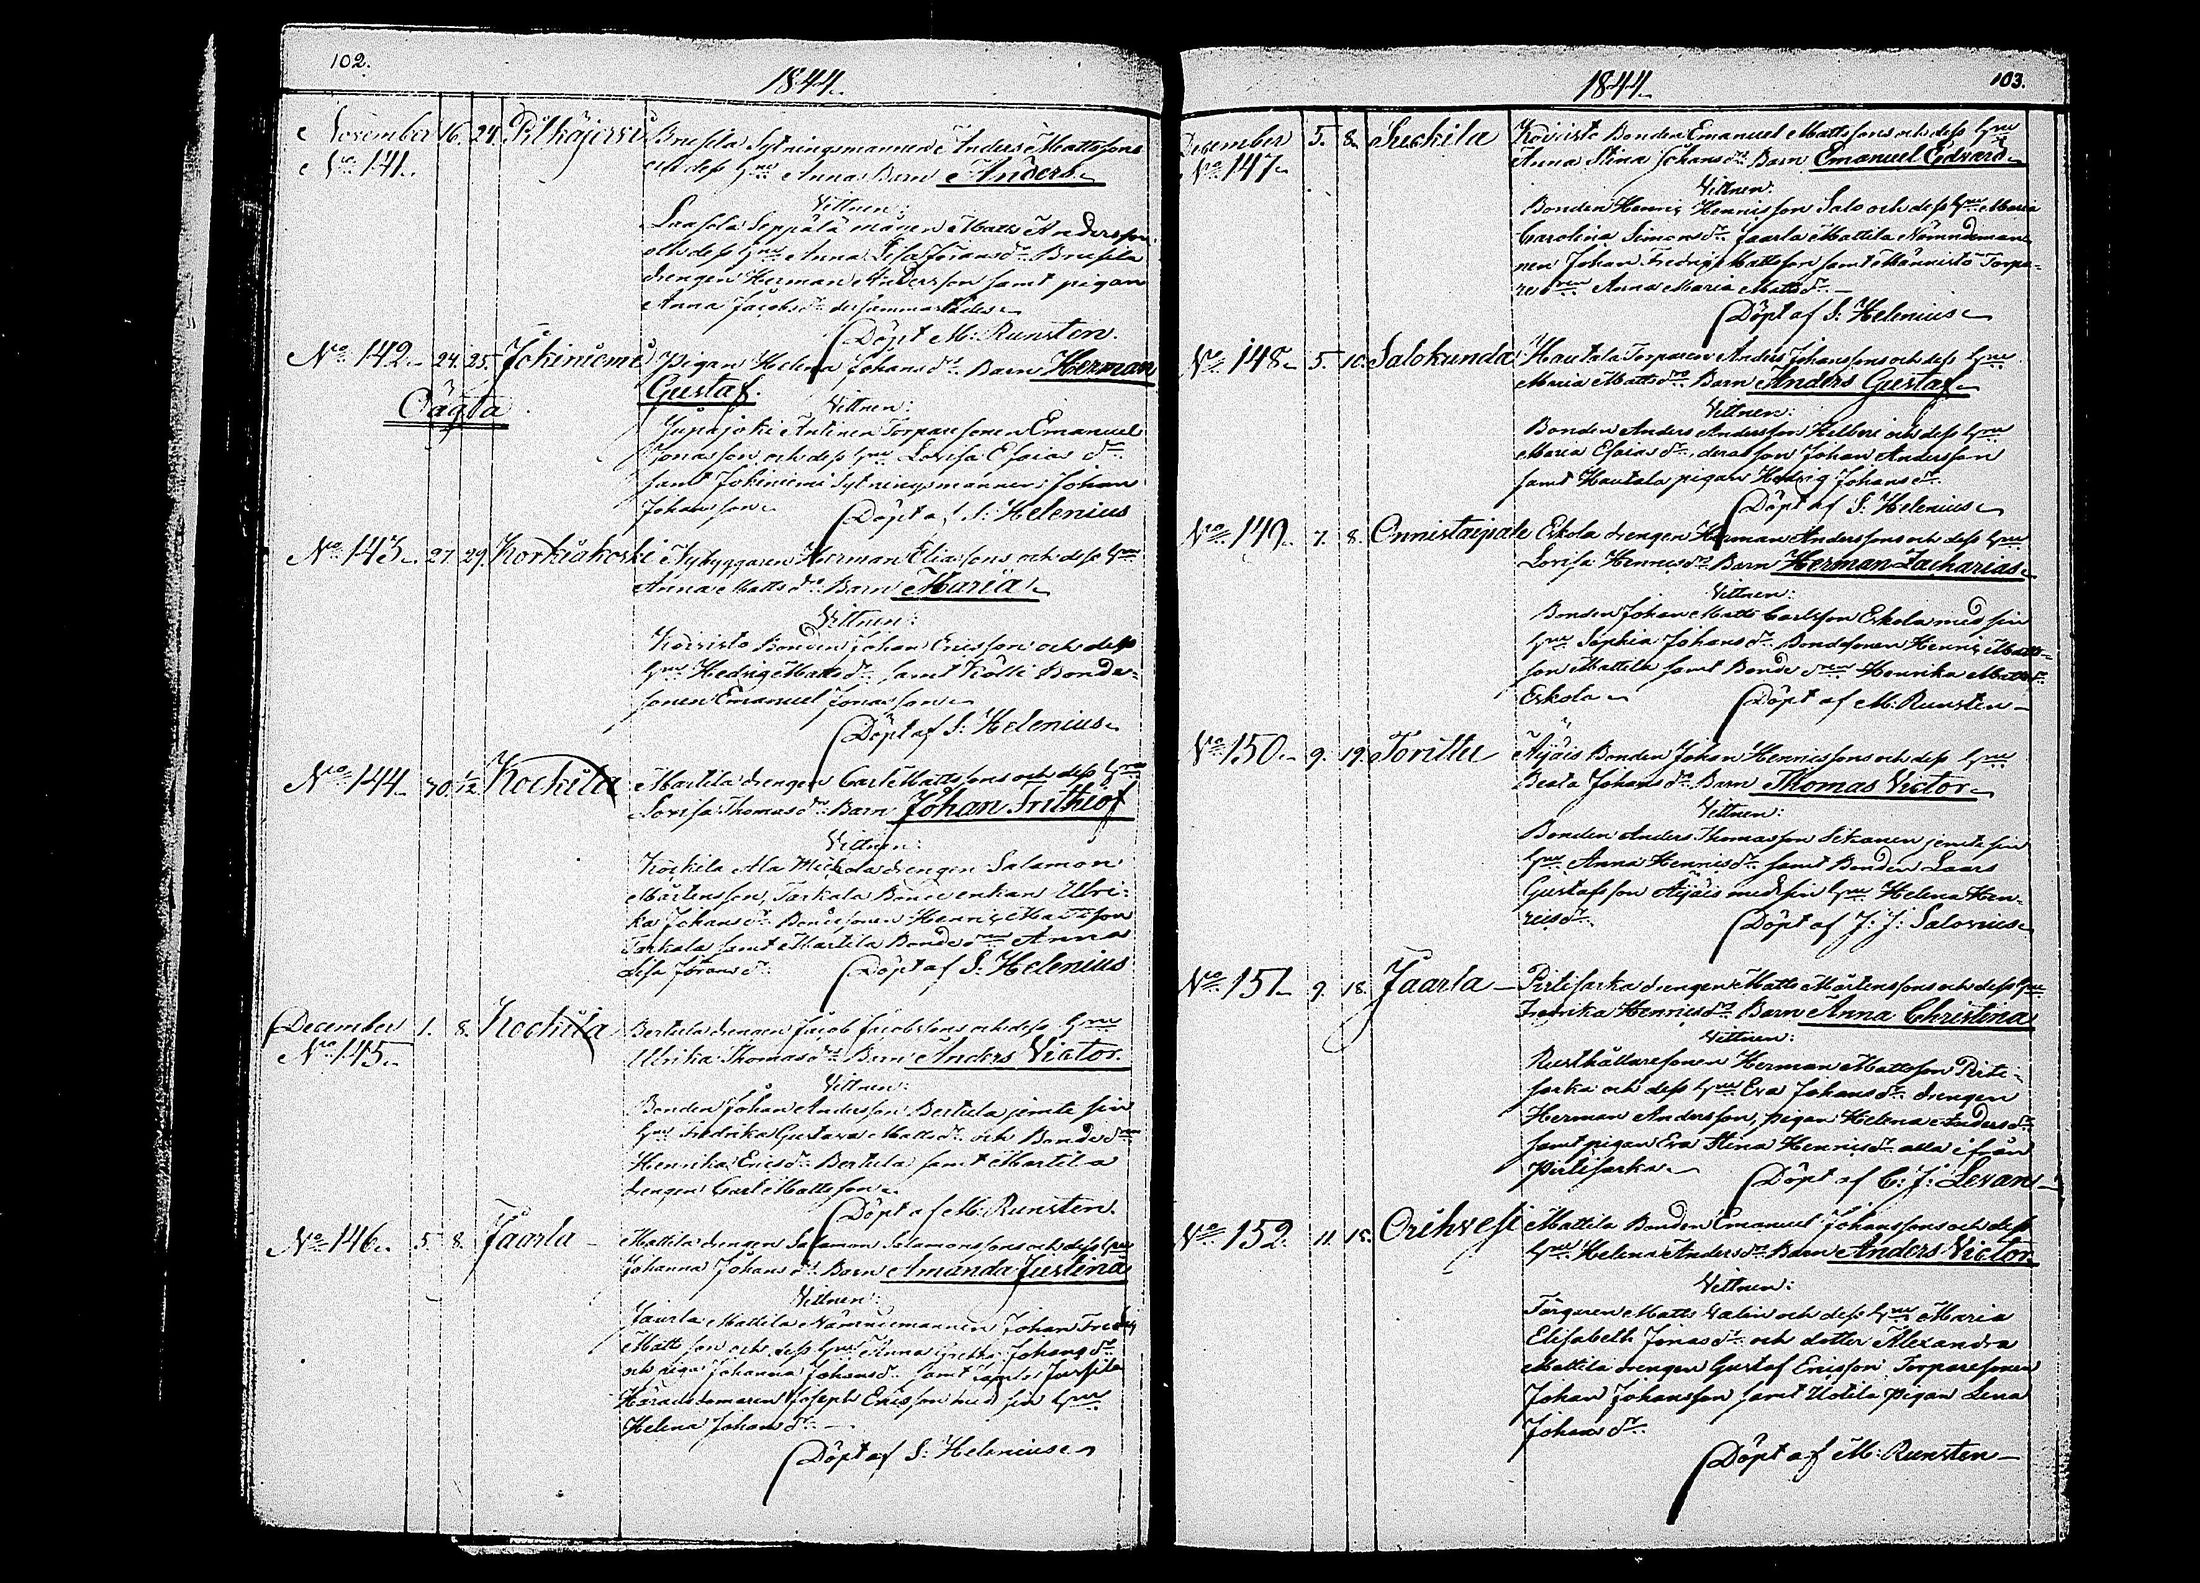 102.
1844.
November 16. 24. Pitkäjervi Brusila Sytningsmannen Anders Mattssons
No 141. och dess Hru Anna Barn Anders.
Vittnen:
Laasola Seppälä mågen Matts Andersson
och dess Hru Anna Lisa Göransdr Brusila
drengen Herman Andersson samt pigan
Anna Jacobsdr dersammastädes
Döpt M: Runsten.
No 142. 24. 25. Jokiniemi Pigan Helena Johansdr Barn Herman
Oägta Gustaf.
Vittnen:
Antinen Torparesonen Emanuel
Jonasson och dess Hru Lovisa Esaiasdr
samt Jokiniemi Sytningsmannen Johan
Johansson
Döpt af S: Helenius
No 143. 27. 29. Korkiakoski Nybyggaren Herman Eliassons och dess Hru
Anna Mattsdr Barn Maria
Vittnen:
Koivisto Bonden Johan Ericsson och dess
Hru Hedvig Mattsdr samt Kölli Bonde-
sonen Emanuel Jonasson
Döpt af S: Helenius
No 144. 30. 1/12 Kockila Martila drengen Carl Mattssons och dess Hru
Lovisa Thomasdr Barn Johan Frithiof
Vittnen:
Kockila Ala drengen Salamon
Mårtensson, Tarkala Bonde enkan Ulri-
ka Johansdr Bondesonen Henric Mattsson
Tarkala samt Martila Bonde dren Anna
Lisa Göransdr
Döpt af S: Helenius
December 1. 8. Kockila Bertula drengen Jacob Jacobssons och dess Hru
No 145. Ulrika Thomasdr Barn Anders Victor.
Vittnen:
Bonden Johan Andersson Bertula jemte sin
Hru Fredrika Gustava Mattsdr och Bonde dren
Henrika Ericsdr Bertula samt Martila
drengen Carl Mattsson
Döpt af M: Runsten.
No 146. 5. 8. Jaarla Mattila drengen Salamon Salamonssons och dess Hru
Johanna Johansdr Barn Amanda Justina
Vittnen:
Jaarla Mattila Nämndemannen Johan Fredric
Mattsson och dess Hru Anna Johansdr
och pigan Johanna Johansdr samt Jussila
Häradsdomaren Joseph Ericsson med sin Hru
Helena Johansdr
Döpt af S: Helenius
103.
1844.
December 5. 8. Suckila Koivisto Bonden Emanuel Mattssons och dess Hru
No 147. Anna Stina Johansdr Barn Emanuel Edvard
Vittnen:
Bonden Henric Henricsson Salo och dess Hru Maria
Carolina Simonsdr Jaarla Mattila Nämndeman-
nen Johan Fredric Mattsson samt Männistö Torpa-
re dren Anna Maria Mattsdr
Döpt af S: Helenius
No 148. 5. 10. Salokunda Hautala Torparen Anders Johanssons och dess Hru
Maria Mattsdr Barn Anders Gustaf
Vittnen:
Bonden Anders Andersson och dess Hru
Maria Esaiasdr, deras son Johan Andersson
samt Hautala pigan Hedvig Johansdr
Döpt af S: Helenius
No 149. 7. 8. Onnistaipale Eskola drengen Herman Anderssons och dess Hru
Lovisa Henricsdr Barn Herman Zacharias
Vittnen:
Bonden Johan Matts Carlsson Eskola med sin
Hru Sophia Johansdr Bondesonen Henric Matts-
son Mattila samt Bonde dren Henrika Mattsdr
Eskola
Döpt af M: Runsten
No 150. 9. 19. Torittu Äijäis Bonden Johan Henricssons och dess Hru
Beata Johansdr Barn Thomas Victor
Vittnen:
Bonden Anders Thomasson jemte sin
Hru Anna Henricsdr samt Bonden Laars
Gustafsson Äijäis med sin Hru Helena Hen-
ricsdr
Döpt af J: J: Salovius
No 151. 9. 18. Jaarla Pirlisarka drengen Matts Mårtenssons och dess Hru
Fredrika Henricsdr Barn Anna Christina
Vittnen:
Rusthållaresonen Herman Mattsson Pirli-
sarka och dess Hru Eva Johansdr drengen
Herman Andersson, pigan Helena Andersdr
samt pigan Eva Stina Henricsdr alla ifrån
Pirlisarka
Döpt af C: J: Levan
No 152. 11. 15. Orihvesi Mattila Bonden Emanuel Johanssons och dess
Hru Helena Andersdr Barn Anders Victor
Vittnen:
Färgaren Matts Valin och dess Hru Maria
Elisabeth Jonasdr och dotter Alexandra
Mattila drengen Gustaf Ericsson, Torparesonen
Johan Johansson samt Uotila pigan Lena
Johansdr
Döpt af M: Runsten